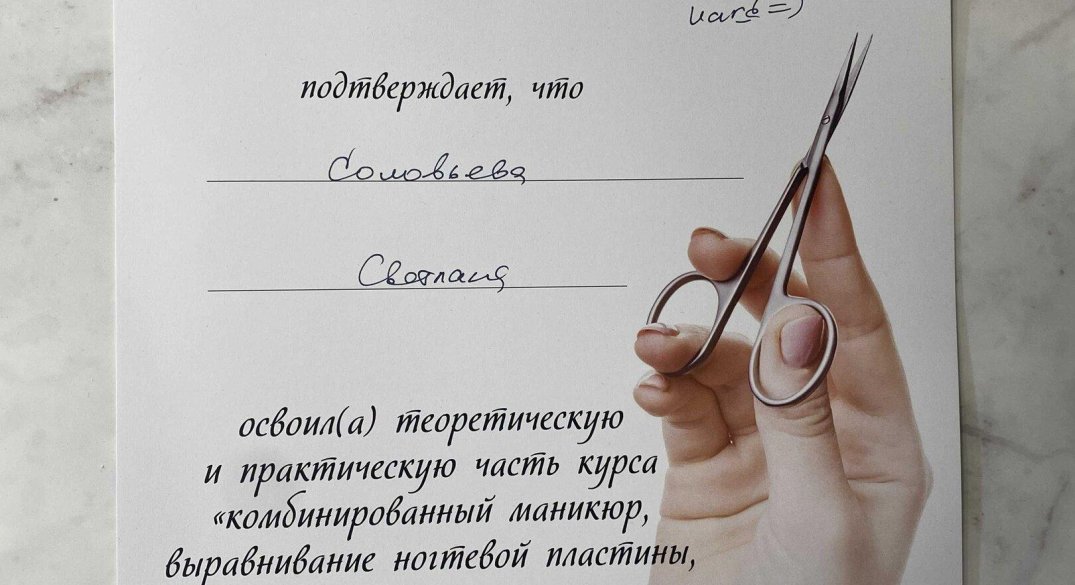 подтверждает, что
Соловьева
Светлана
освоил(а) теоретическую
и практическую часть курса
«комбинированный маникюр,
выравнивание ногтевой пластины,